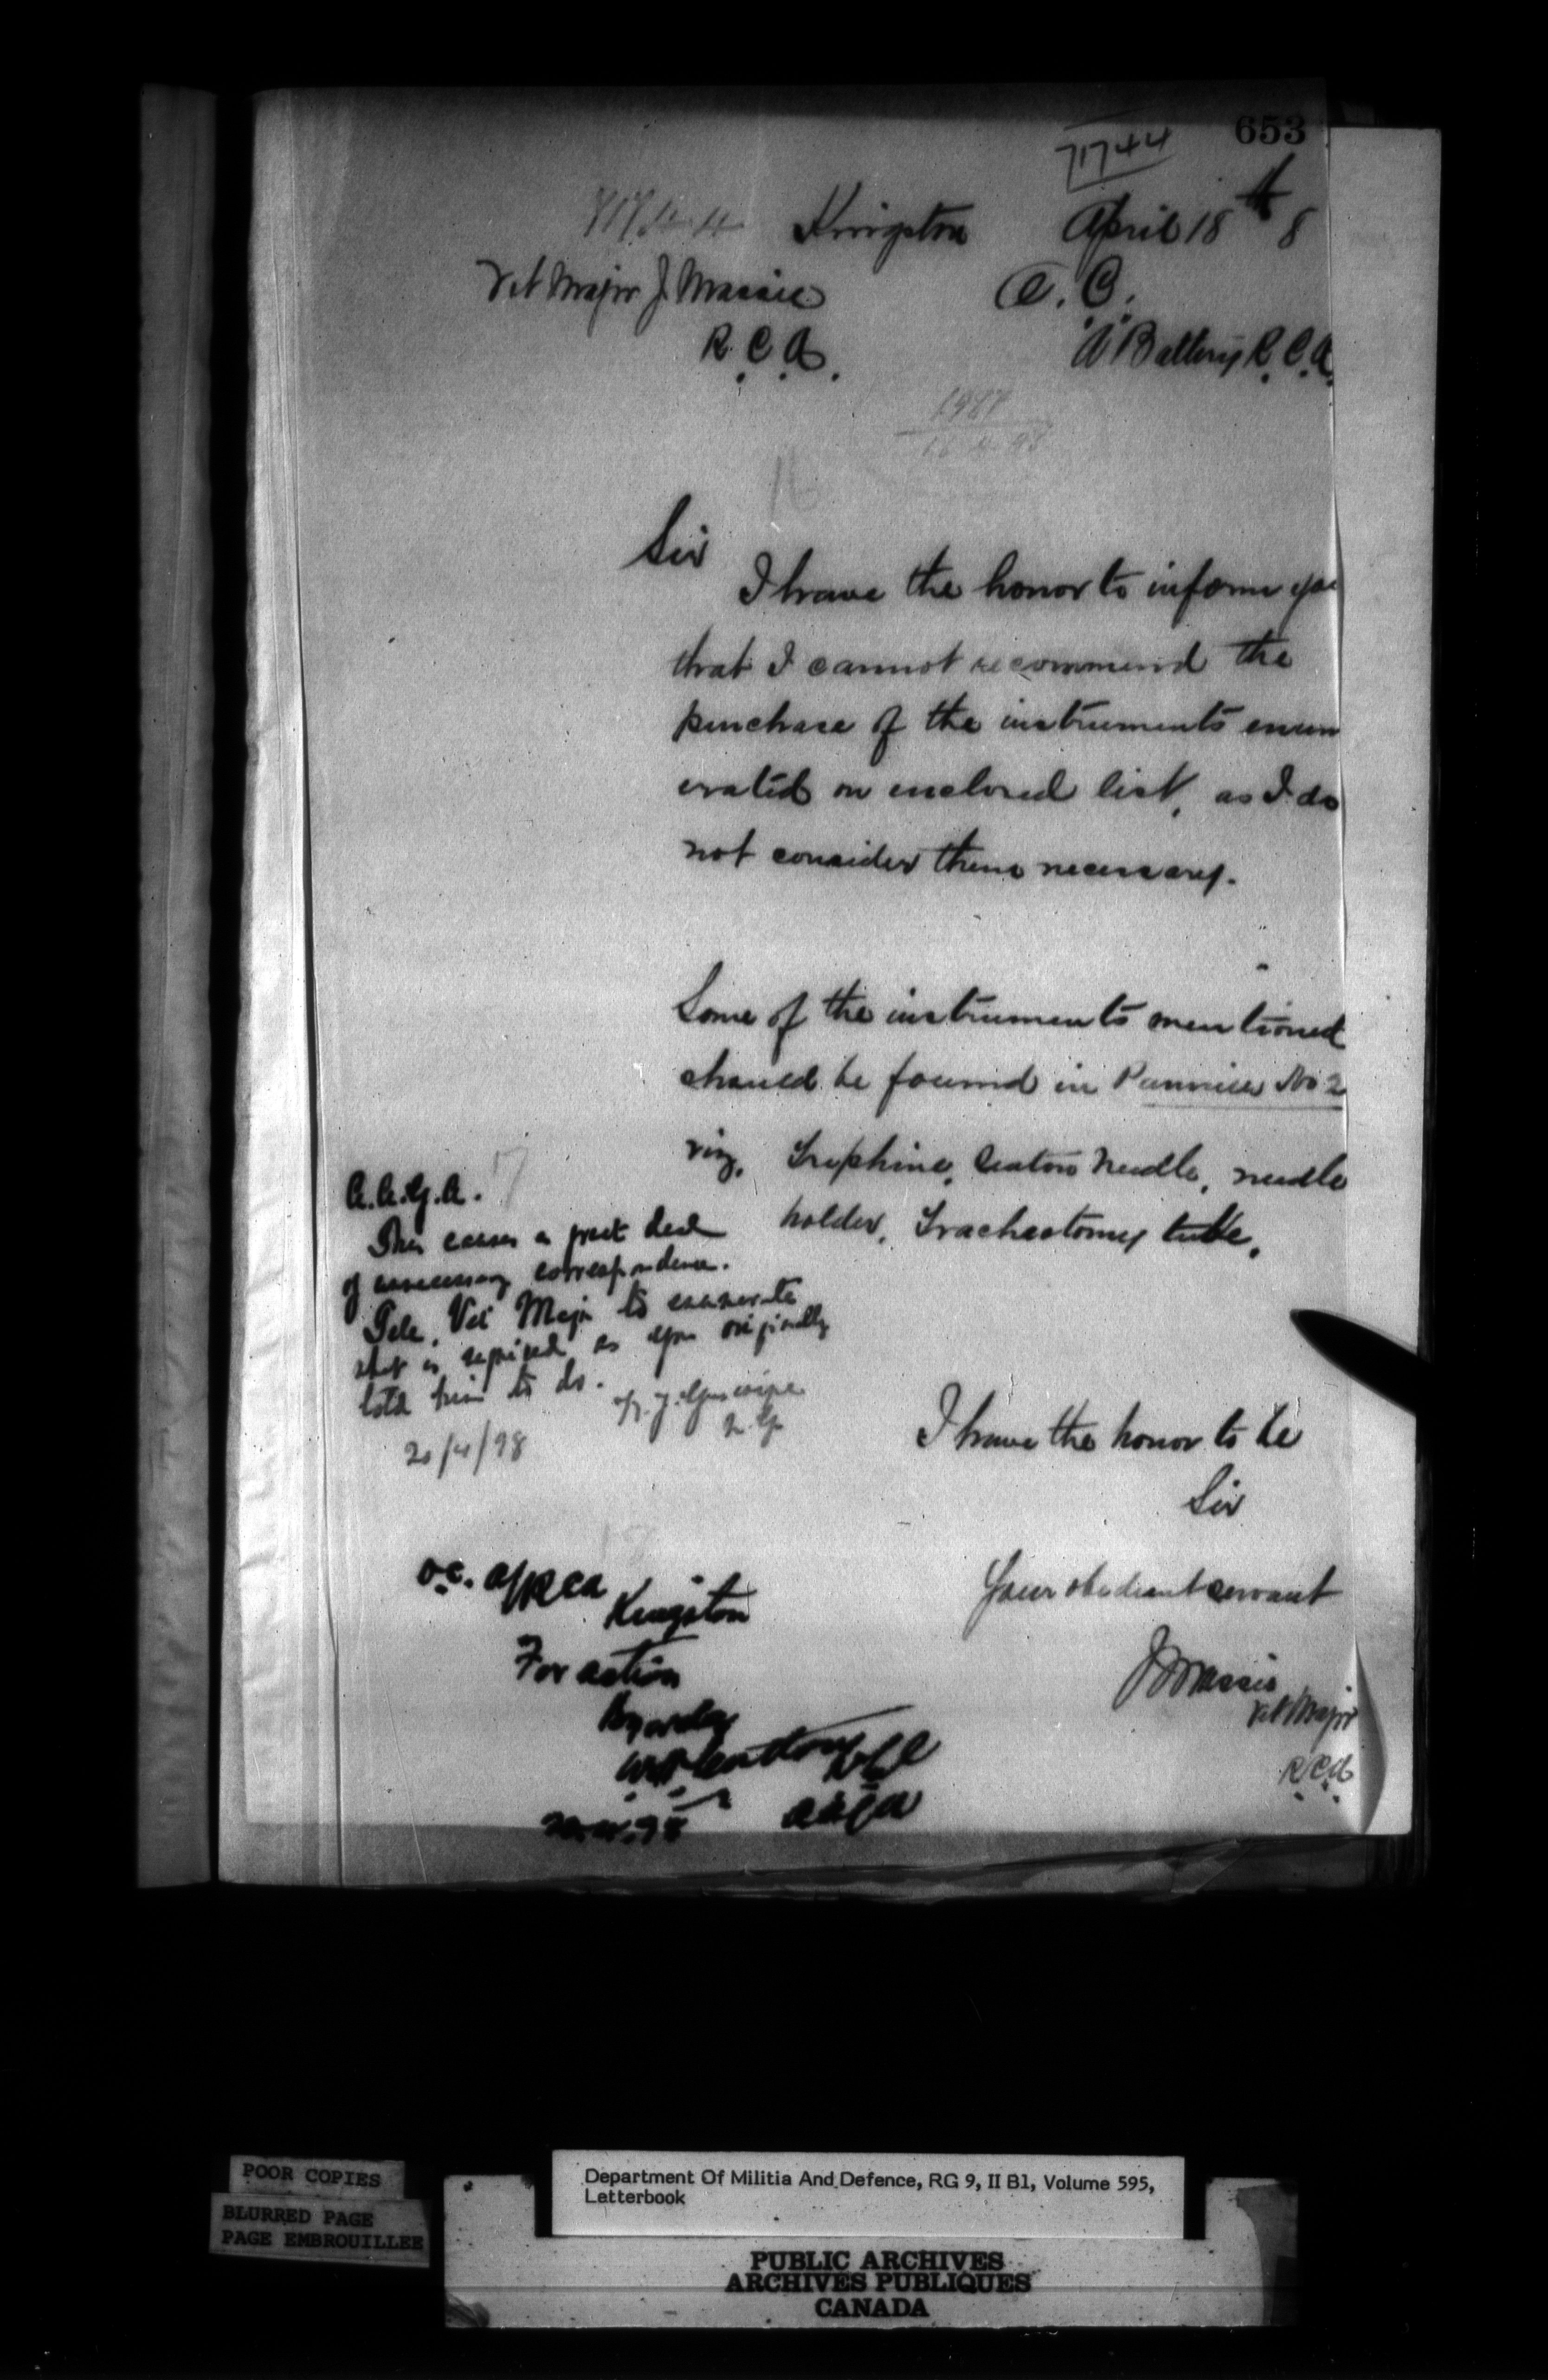 653
71744
71744 Kingston April 18th 8
Vet Major J. Massie O. C.
R. C. A. "A" Battery R. C. A.
1987
Sir
I have the honor to inform you
that I cannot recommend the
purchase of the instruments enum
erated on enclosed list, as I do
not consider them necessary.
Some of the instruments mentioned
should be found in Pannier No 2
viz, Trephine, Seaton Needle, needle
holder, Tracheotomy tube,
17
A.A.G.A.
This causes a great deal
of unnecessary correspondence.
Tele. Vet Major to enumerate
what is required as you originally
told him to do.
20/4/98
I have the honor to be
Sir
Your obedient servant
J Massie
Vet Major
R.C.A
O.C. A/RCA
Kingston
For action
By order
20.4.98 AAGA
POOR COPIES
BLURRED PAGE
PAGE EMBROUILLEE
Department Of Militia And Defence, RG 9, II B1, Volume 595,
Letterbook
PUBLIC ARCHIVES
ARCHIVES PUBLIQUES
CANADA